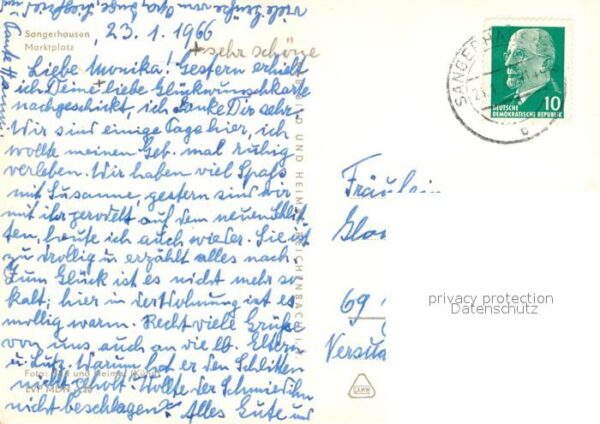 viele herzliche
Tante Hanni
Sangerhausen
Marktplatz
23.1.1966
+ sehr schöne
Liebe Monika! Gestern erhielt
ich Deine liebe + Glückwunschkarte
nachgeschickt, ich danke Dir sehr.
Wir sind einige Tage hier, ich
wollte meinen Geb. mal ruhig
verleben. Wir haben viel Spaß
mit Susanne, gestern sind wir
mit ihr gerodelt auf dem neuen Schlit
ten, heute ich auch wieder. Sie ist
zu drollig u. erzählt alles nach.
Zum Glück ist es nicht mehr so
kalt; hier in der Wohnung ist es
mollig warm. Recht viele Grüße
von uns auch an die lb. Eltern
u. Lutz. Warum hat er den Schlitten
nicht geholt? Wollte der Schmied ihn
nicht beschlagen? Alles Gute und
Foto: Bild und Heimat
BILD UND HEIMAT REICHENBACH I. V.
SANGERHA
10
DEUTSCHE
DEMOKRATISCHE REPUBLIK
b
Fräulein
69
privacy protection
Datenschutz